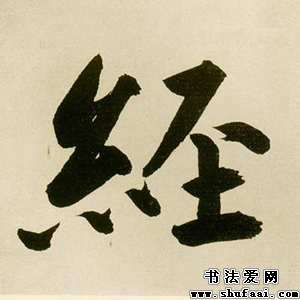 経
书法爱网
www.shufaai.com